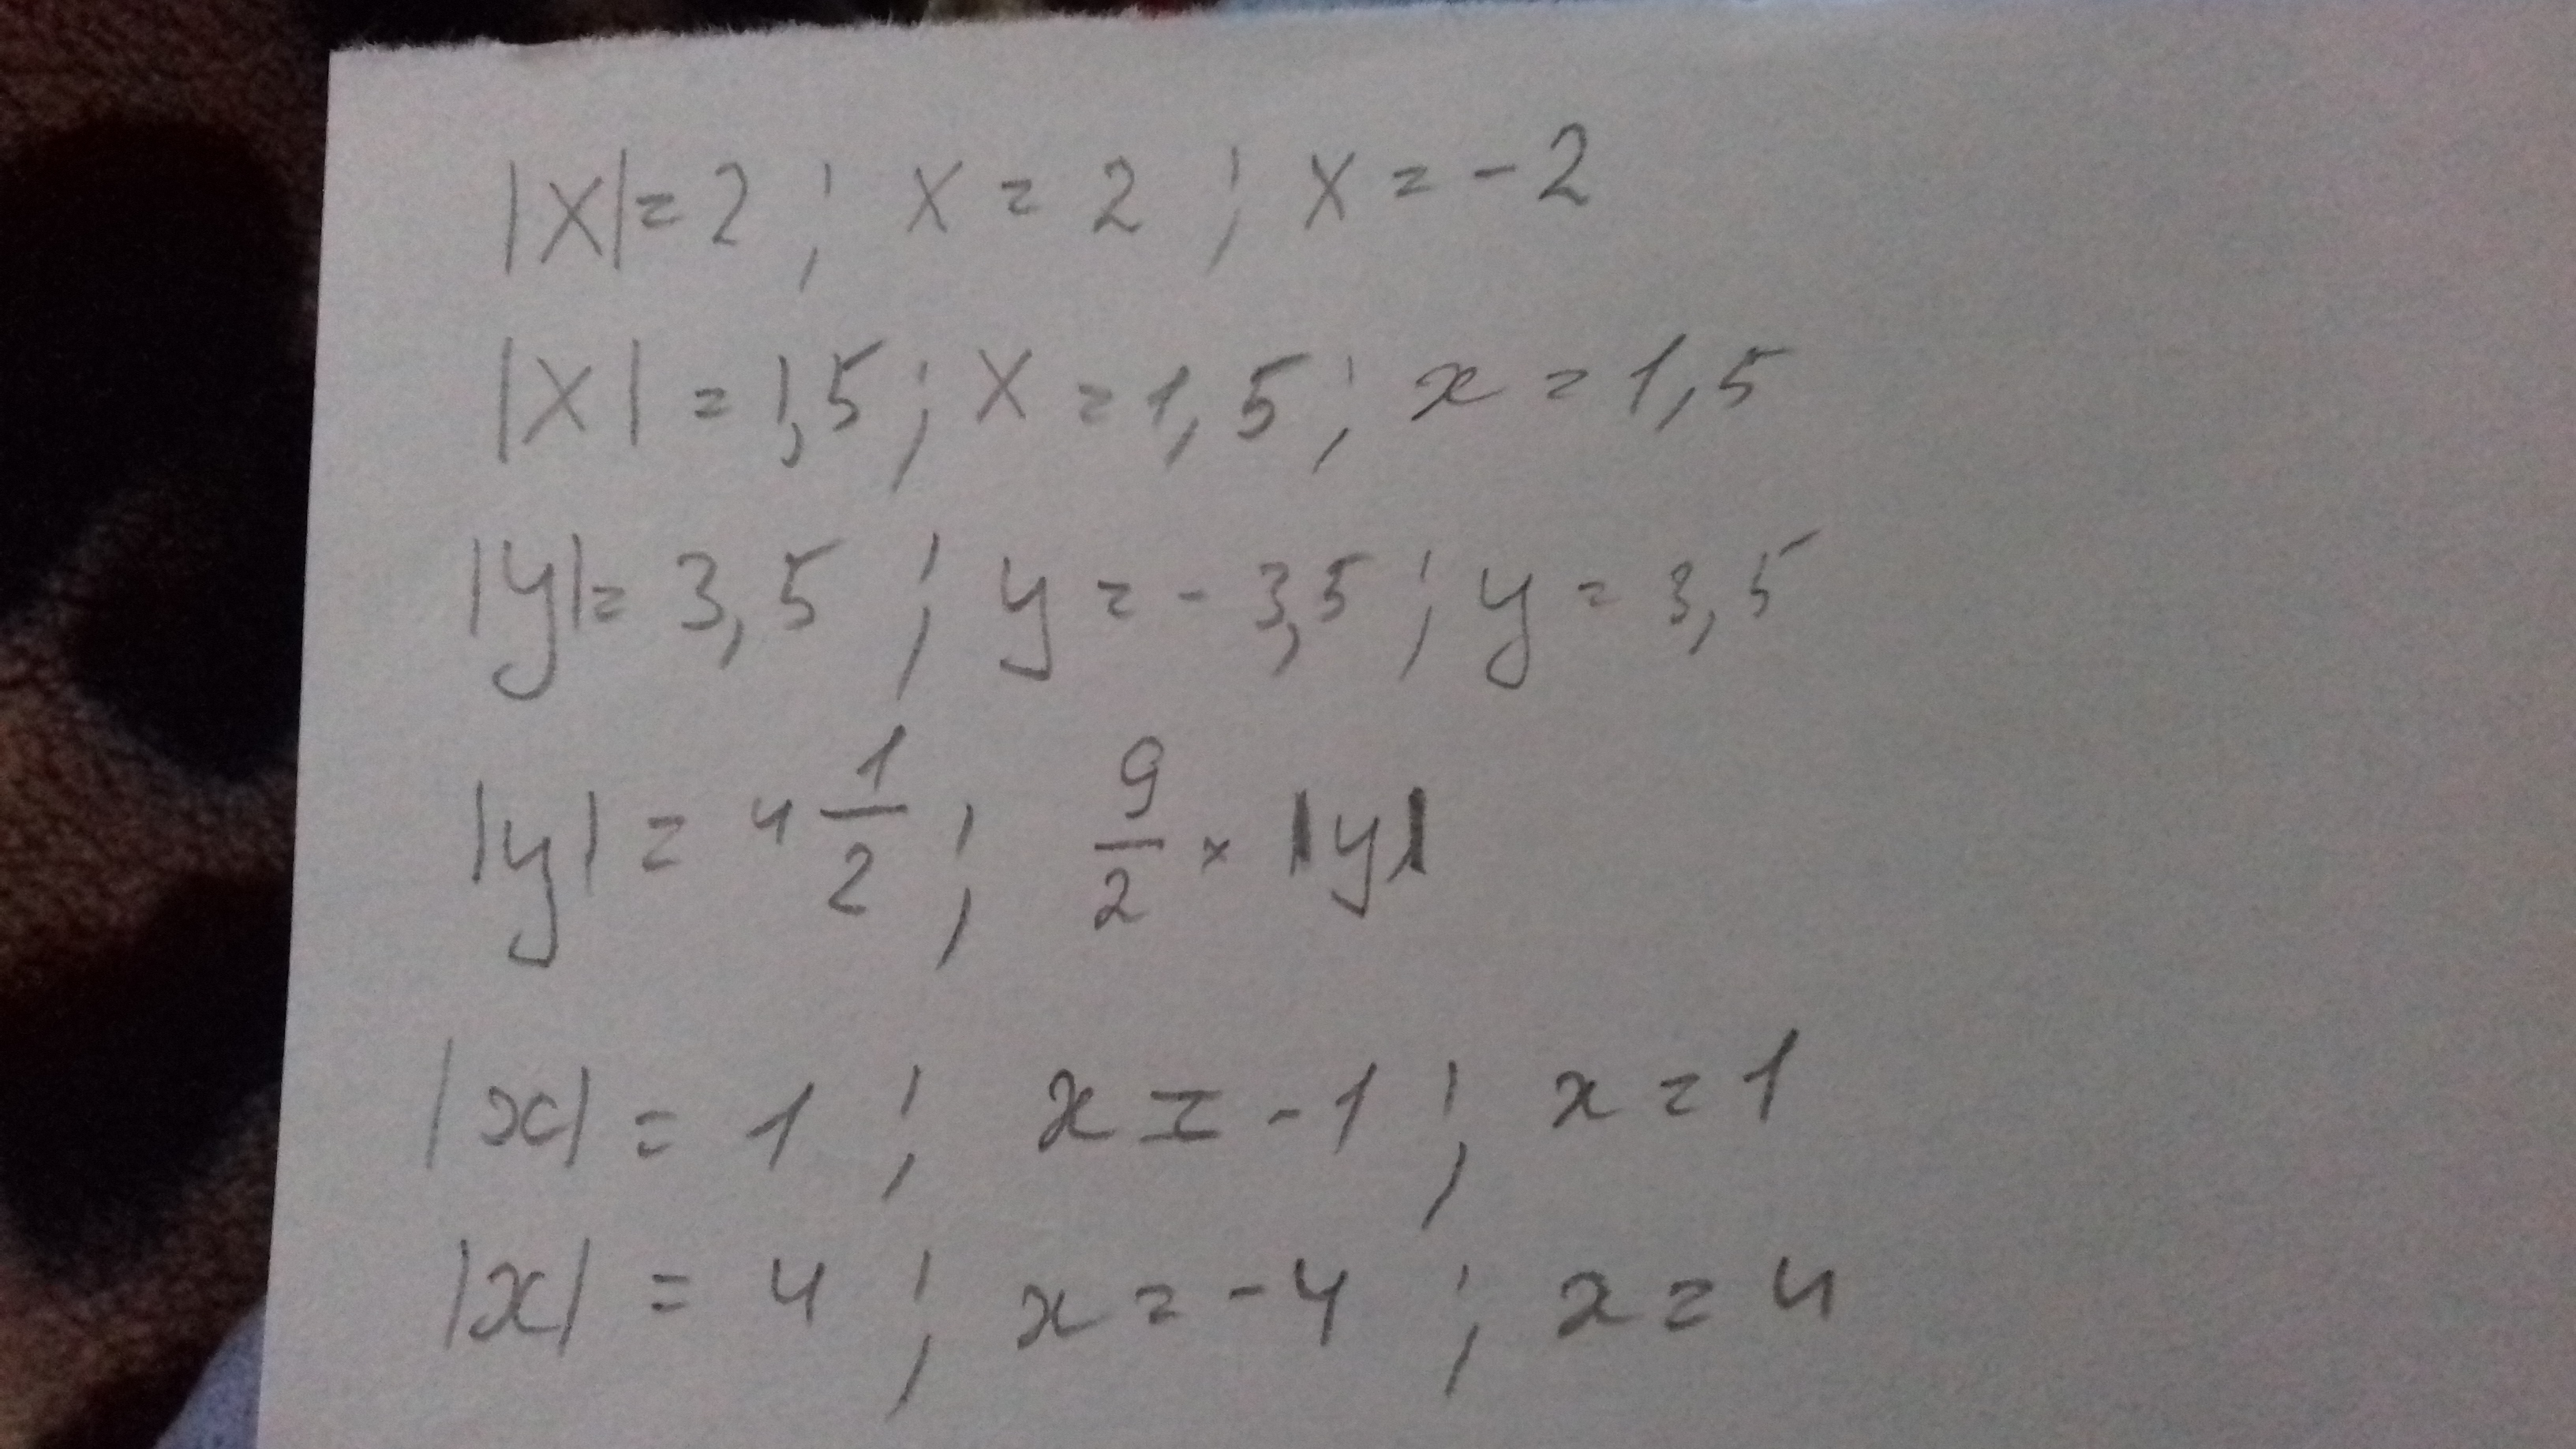 |x| = 2 ; x = 2 ; x = - 2
|x| = 1,5 ; x = 1,5 ; x = 1,5
|y| = 3,5 ; y = - 3,5 ; y = 3,5
|y| = 4 1/2 ; 9/2 × |y|
|x| = 1 ; x = - 1 ; x = 1
|x| = 4 ; x = - 4 ; x = 4